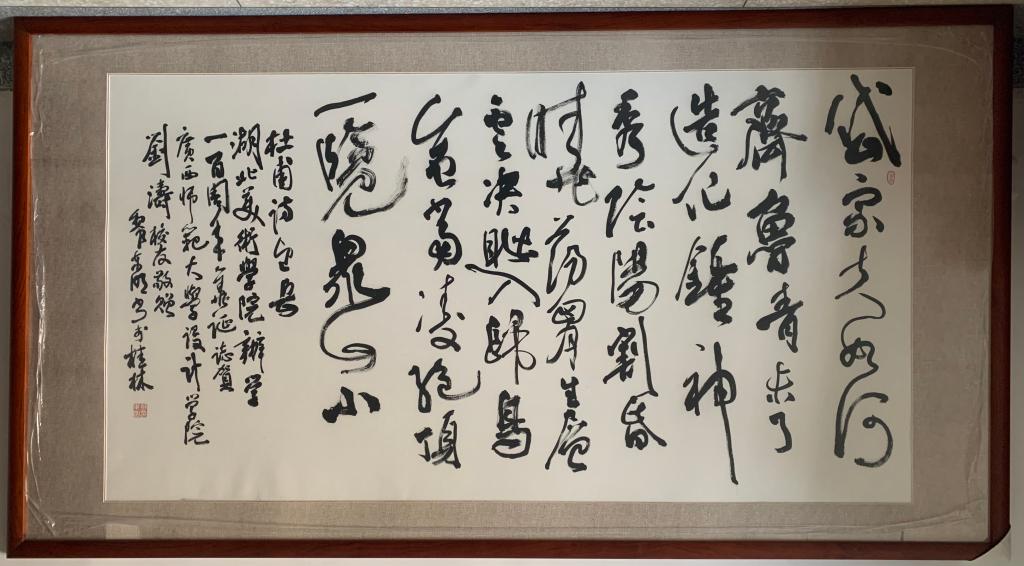 岱宗夫如何
齊魯青未了
造化鍾神
秀陰陽割昏
曉蕩胷生層
雲决眦入歸鳥
會當凌絕頂
一覽衆山小
杜甫詩望岳
湖北美術學院辦学
一百周年華誕誌賀
廣西师範大學設计学院
劉濤校友敬贈
於桂林